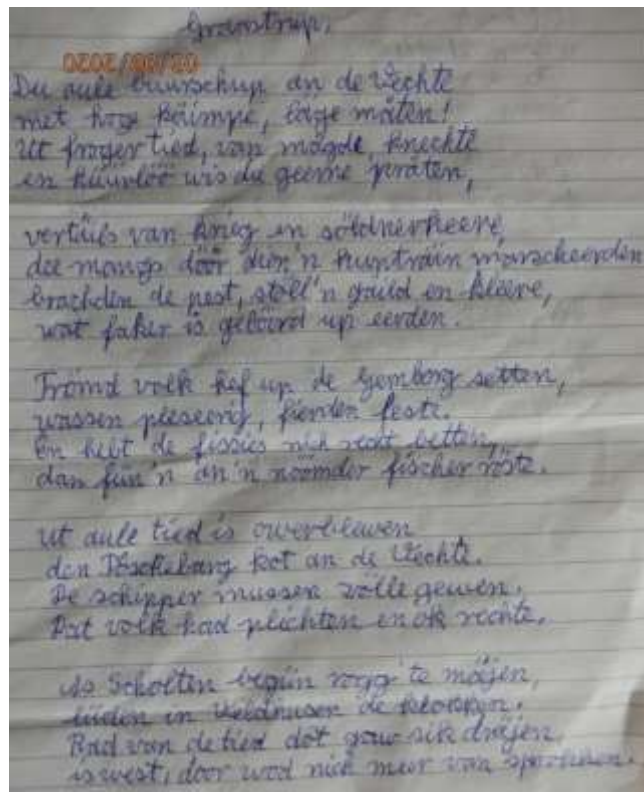 Gramstrup,
02/08/2020
Du aule buurschup an de Vechte
met hoge käimpe, lage mäten!
Ut froger tied, van mägde, knechte
en hüürlöö wis du geerne präten,
vertüls van krieg en söldnerheere,
dee mangs döör dien'n marscheerden
brachden de pest, stöll'n gaud en kleere,
wat faker is geböörd up eerden.
Frömd volk hef up de setten,
wassen pleseerig, fierden feste.
En hebt de fissies nich recht betten,
dan fün'n an'n nöömder fischer röste.
Ut aule tied is owerblewen
den kot an de Vechte.
De schipper mussen zölle gewen.
Dat volk had plichten en ok rechte.
As Scholten begün rogg' te mäjen,
lüden in Veldhusen de klocken.
Rad van de tied dot gau sik dräjen,
is west, door wod nich meer van sproken.